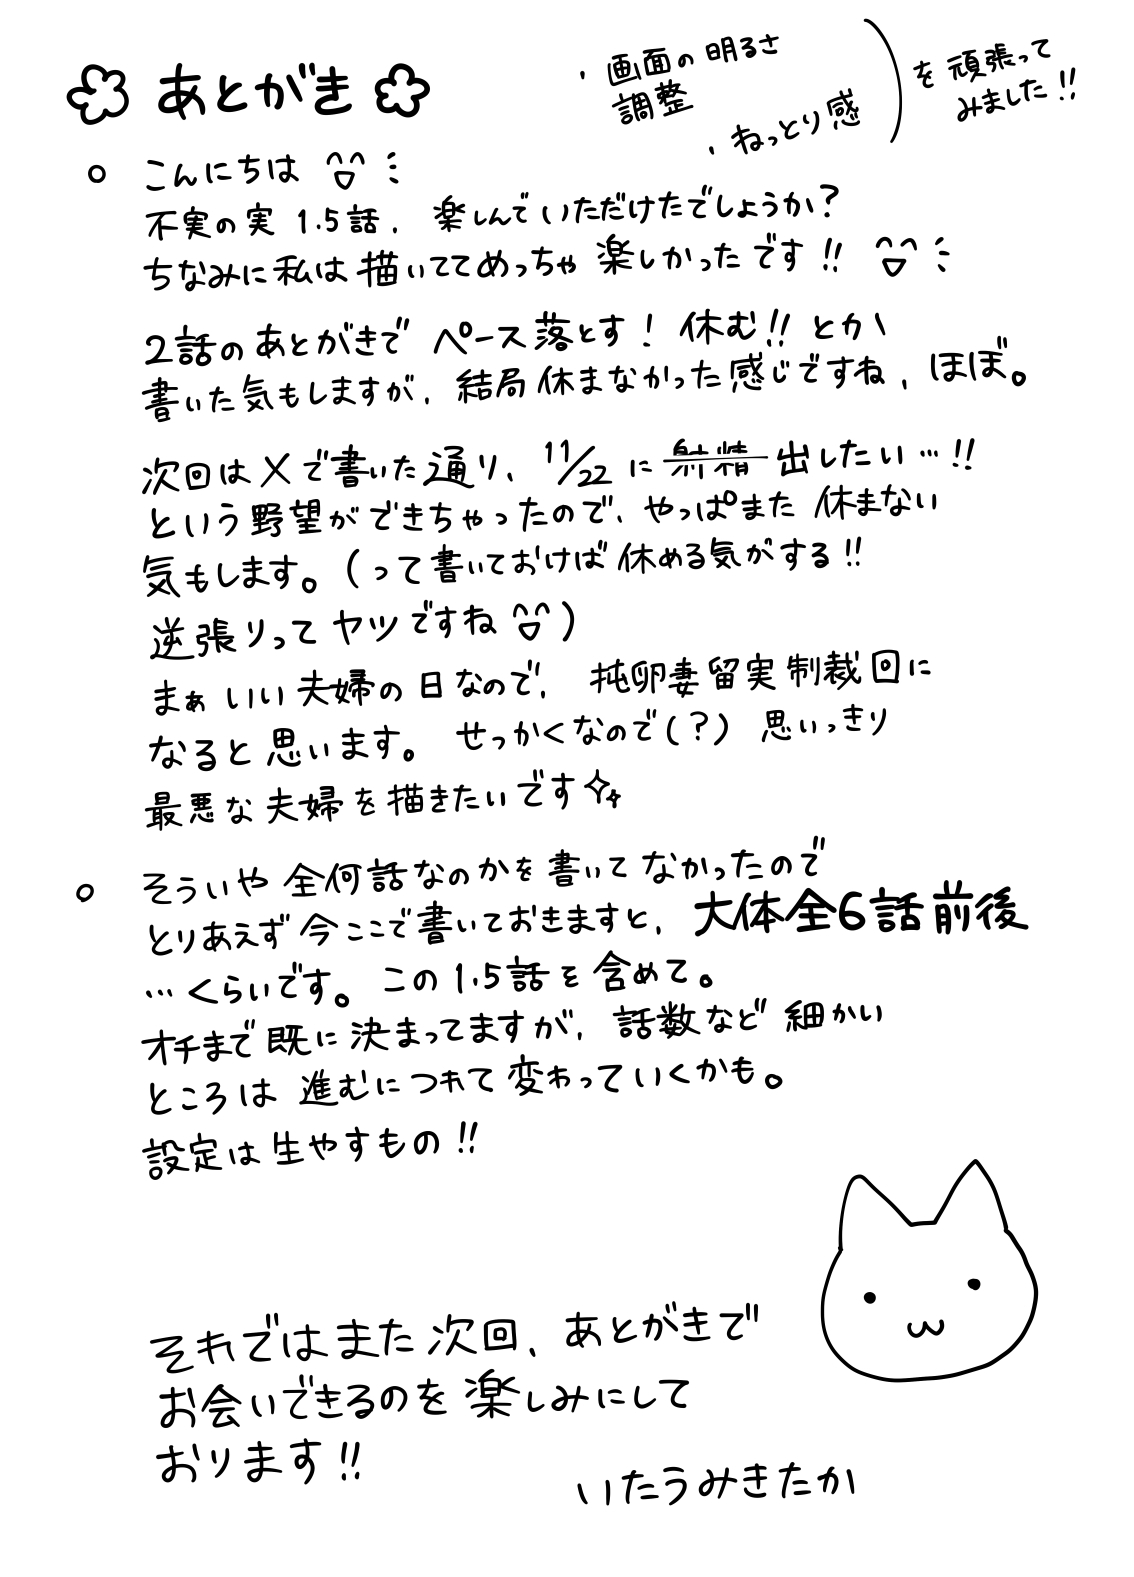 あとがき
・画面の明るさ
調整
・ねっとり感
を頑張って
みました!!
こんにちは
不実の実 1.5話、楽しんでいただけたでしょうか?
ちなみに私は描いててめっちゃ楽しかったです!!
2話のあとがきでペース落とす!休む!!とか
書いた気もしますが、結局休まなかった感じですね、ほぼ。
次回はXで書いた通り、11/22に射精出したい…!!
という野望ができちゃったので、やっぱまた休まない
気もします。(って書いておけば休める気がする!!
逆張りってヤツですね)
まぁいい夫婦の日なので、托卵妻留実制裁回に
なると思います。せっかくなので(?)思いっきり
最悪な夫婦を描きたいです
そういや全何話なのかを書いてなかったので
とりあえず今ここで書いておきますと、大体全6話前後
…くらいです。この1.5話を含めて。
オチまで既に決まってますが、話数など細かい
ところは進むにつれて変わっていくかも。
設定は生やすもの!!
それではまた次回、あとがきで
お会いできるのを楽しみにして
おります!!
いたうみきたか